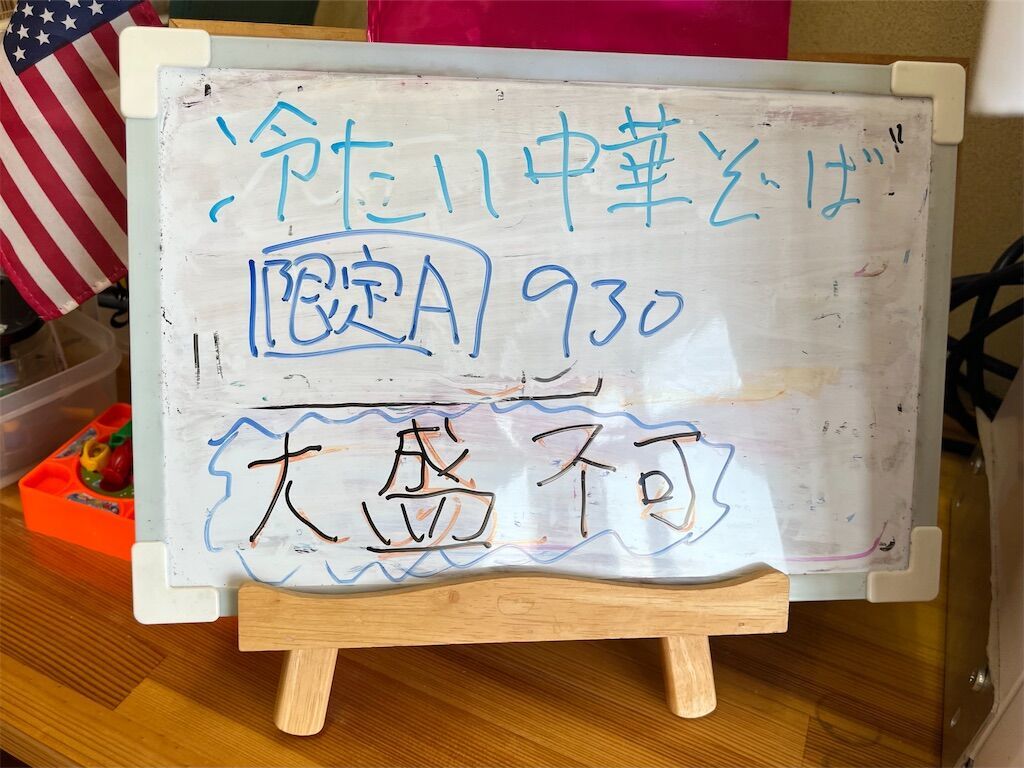 冷たい中華そば
限定A 930
大盛不可